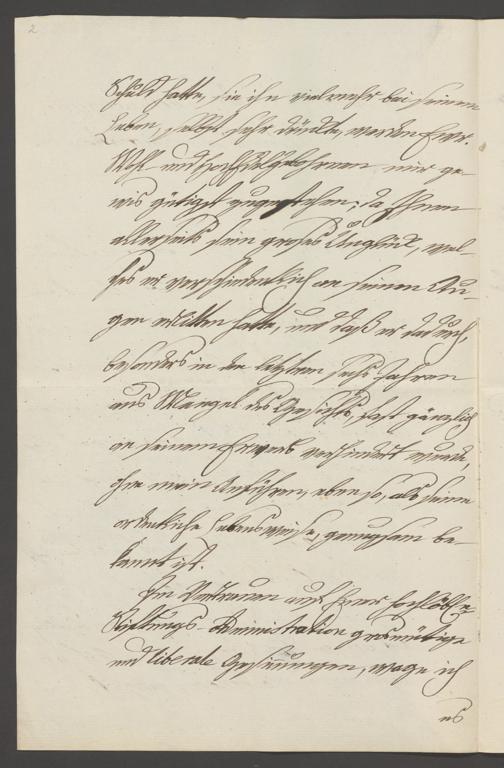 2
Schuld hatte, sie ihn vielmehr bei seinem
Leben, selbst sehr drückte, werden Ewr.
Wohl- und Hochedelgebohrnen mir ge-
wis gütigst zugestehen; da Ihnen
allerseits sein groses Unglück, wel-
ches er verschiedentlich an seinen Au-
gen erlitten hatte, und daß er dadurch,
besonders in den letztern sechs Jahren
aus Mangel des Gesichts, fast gänzlich
an seinem Erwerb verhindert wurde,
ohne mein Anführen, eben so, als seine
ordentliche Lebensweise, genugsam be-
kannt ist.
Im Vertrauen auf Einer Hochlöbl.
Stiftungs-Administration grosmütige
und liberale Gesinnungen, wage ich
es